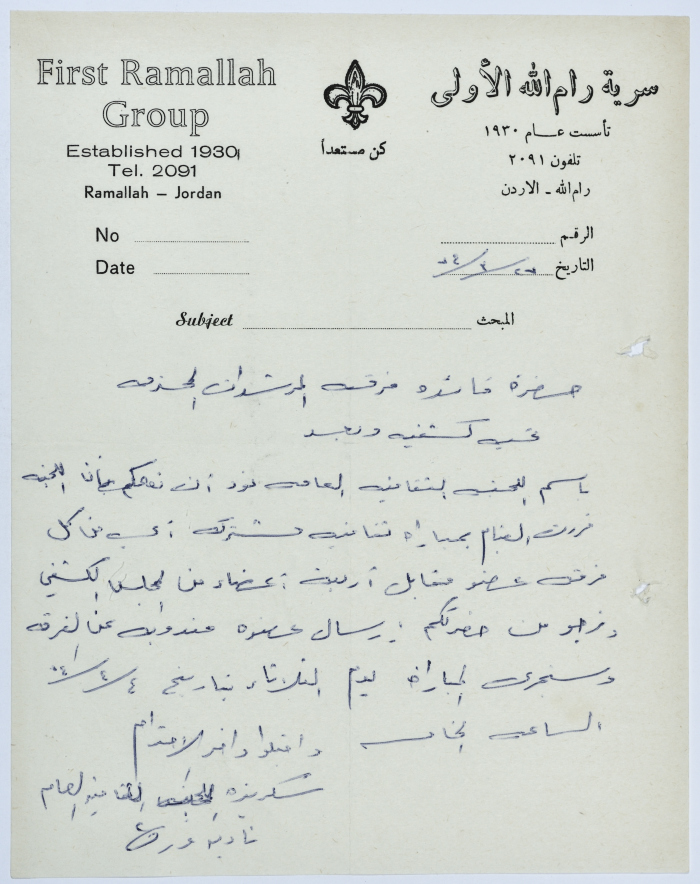 First Ramallah
Group
Established 1930
Tel. 2091
Ramallah – Jordan
سرية رام الله الأولى
تأسست عــام ١٩٣٠
تلفون ٢٠٩١
رام الله ـ الاردن
كن مستعداً
No
Date
الرقم
التاريخ
Subject المبحث
حضرة قائدة فرقة المرشدات
تحية كشفية وبعد
باسم اللجنة الثقافية العامة نود أن نعلمكم بأن اللجنة
قررت القيام بمباراة ثقافية مشتركة أي من كل
فرقة عضو مقابل أربعة أعضاء من المجلس الكشفي
ونرجو من حضرتكم إرسال عضوة مندوبة عن الفرقة
وستجري المباراة يوم الثلاثاء بتاريخ
الساعة الخامسة
واقبلوا وافر الاحترام
اللجنة الثقافية العامة
نادية